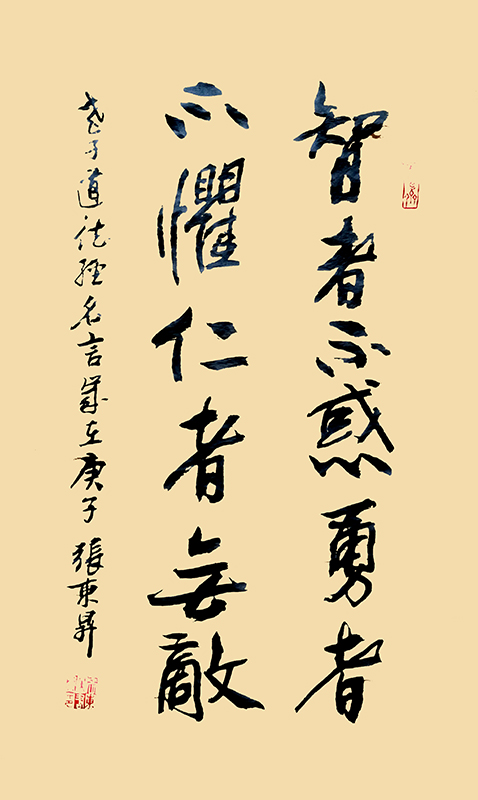 智者不惑勇者
不懼仁者無敵
老子道德經名言歲在庚子 張東昇